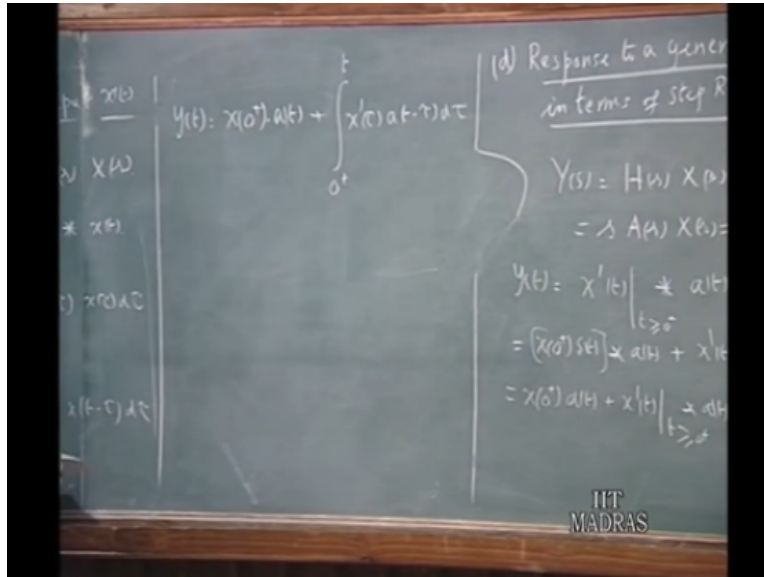 x(t)
X(s)
* x(t)
x(τ) dτ
x(t-τ) dτ
y(t) = x(0⁺) a(t) + ∫₀₊ᵗ x'(τ) a(t-τ) dτ
(d) Response to a gener
in terms of step R
Y(s) = H(s) X(s)
= s A(s) X(s) =
y(t) = x'(t)|t≥0⁻ * a(t)
= [x(0⁺) δ(t)] * a(t) + x'(t
= x(0⁺) a(t) + x'(t)|t≥0⁺ * a(t)
IIT
MADRAS